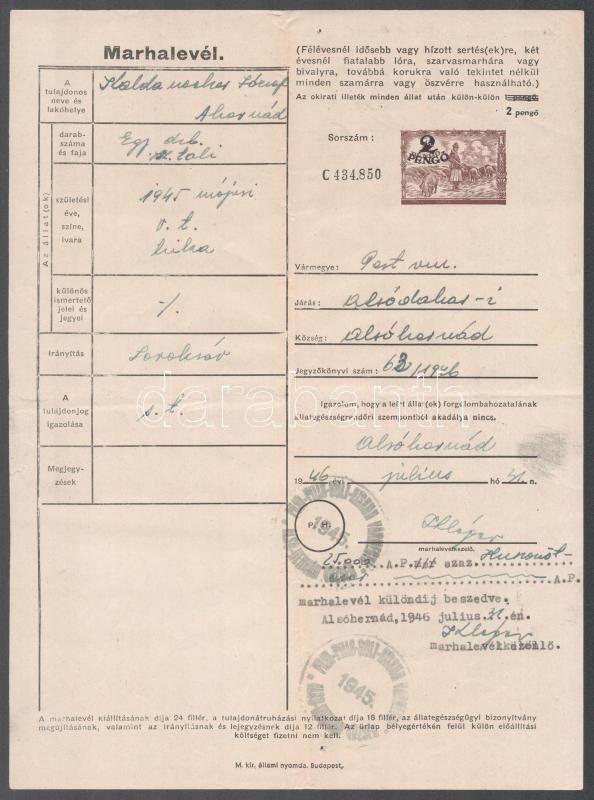 Marhalevél.
(Félévesnél idősebb vagy hízott sertés(ek)re, két
évesnél fiatalabb lóra, szarvasmarhára vagy
bivalyra, továbbá korukra való tekintet nélkül
minden szamárra vagy öszvérre használható.)
Az okirati illeték minden állat után külön-külön 1 pengő
2 pengő
A
tulajdonos
neve és
lakóhelye
József
Az állat(ok)
darab-
száma
és faja
Egy drb.
születési
éve,
színe,
ivara
1945 májusi
v. t.
bika
különös
ismertető
jelei és
jegyei
-/.
Irányítás
Soroksár
A
tulajdonjog
igazolása
s. t.
Megjegy-
zések
Sorszám:
C 434.850
2
PENGŐ
Vármegye: Pest vm.
Járás: alsódabas-i
Község: Alsóhernád
Jegyzőkönyvi szám: 63/1946
Igazolom, hogy a leírt állat(ok) forgalombahozatalának
állategészségrendőri szempontból akadálya nincs.
Alsóhernád
1946 évi július hó 31. n.
P. H.
marhalevélkezelő.
25.000 A.P. azaz Huszonöt-
ezer A.P.
marhalevél különdíj beszedve.
Alsóhernád,1946 julius.31.én.
marhalevélkezelő.
1945.
1945.
darabanth
A marhalevél kiállításának díja 24 fillér, a tulajdonátruházási nyilatkozat díja 16 fillér, az állategészségügyi bizonyítvány
megújításának, valamint az irányításnak és lejegyzésnek díja 12 fillér. Az űrlap bélyegértékén felül külön előállítási
költséget fizetni nem kell.
M. kir. állami nyomda. Budapest.